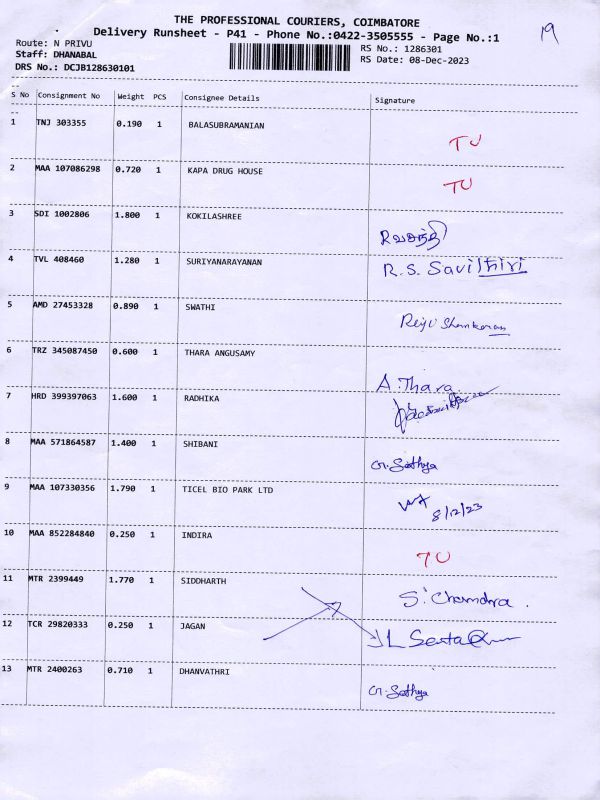 THE PROFESSIONAL COURIERS, COIMBATORE
19
Delivery Runsheet - P41 - Phone No.:0422-3505555 - Page No.:1
Route: N PRIVU
RS No.: 1286301
Staff: DHANABAL
RS Date: 08-Dec-2023
DRS No.: DCJB128630101
S No Consignment No Weight PCS Consignee Details Signature
1 TNJ 303355 0.190 1 BALASUBRAMANIAN TU
2 MAA 107086298 0.720 1 KAPA DRUG HOUSE TU
3 SDI 1002806 1.800 1 KOKILASHREE
4 TVL 408460 1.280 1 SURIYANARAYANAN R.S. Savithiri
5 AMD 27453328 0.890 1 SWATHI
6 TRZ 345087450 0.600 1 THARA ANGUSAMY A.Thara.
7 HRD 399397063 1.600 1 RADHIKA
8 MAA 571864587 1.400 1 SHIBANI G.Sathya
9 MAA 107330356 1.790 1 TICEL BIO PARK LTD 8/12/23
10 MAA 852284840 0.250 1 INDIRA TU
11 MTR 2399449 1.770 1 SIDDHARTH S. Chandra.
12 TCR 29820333 0.250 1 JAGAN
13 MTR 2400263 0.710 1 DHANVATHRI G.Sathya